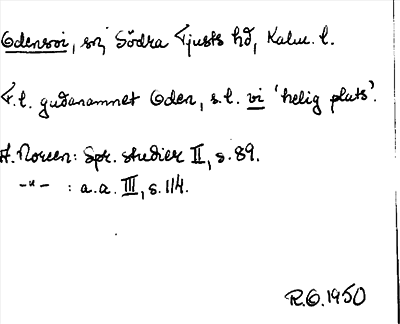 Odensvi, sn, Södra Tjusts hd, Kalm. l.
F.l. gudanamnet Oden, s.l. vi 'helig plats'.
A. Noreen: Spr. studier II, s. 89.
-"- : a.a. III, s. 114.
R.O. 1950